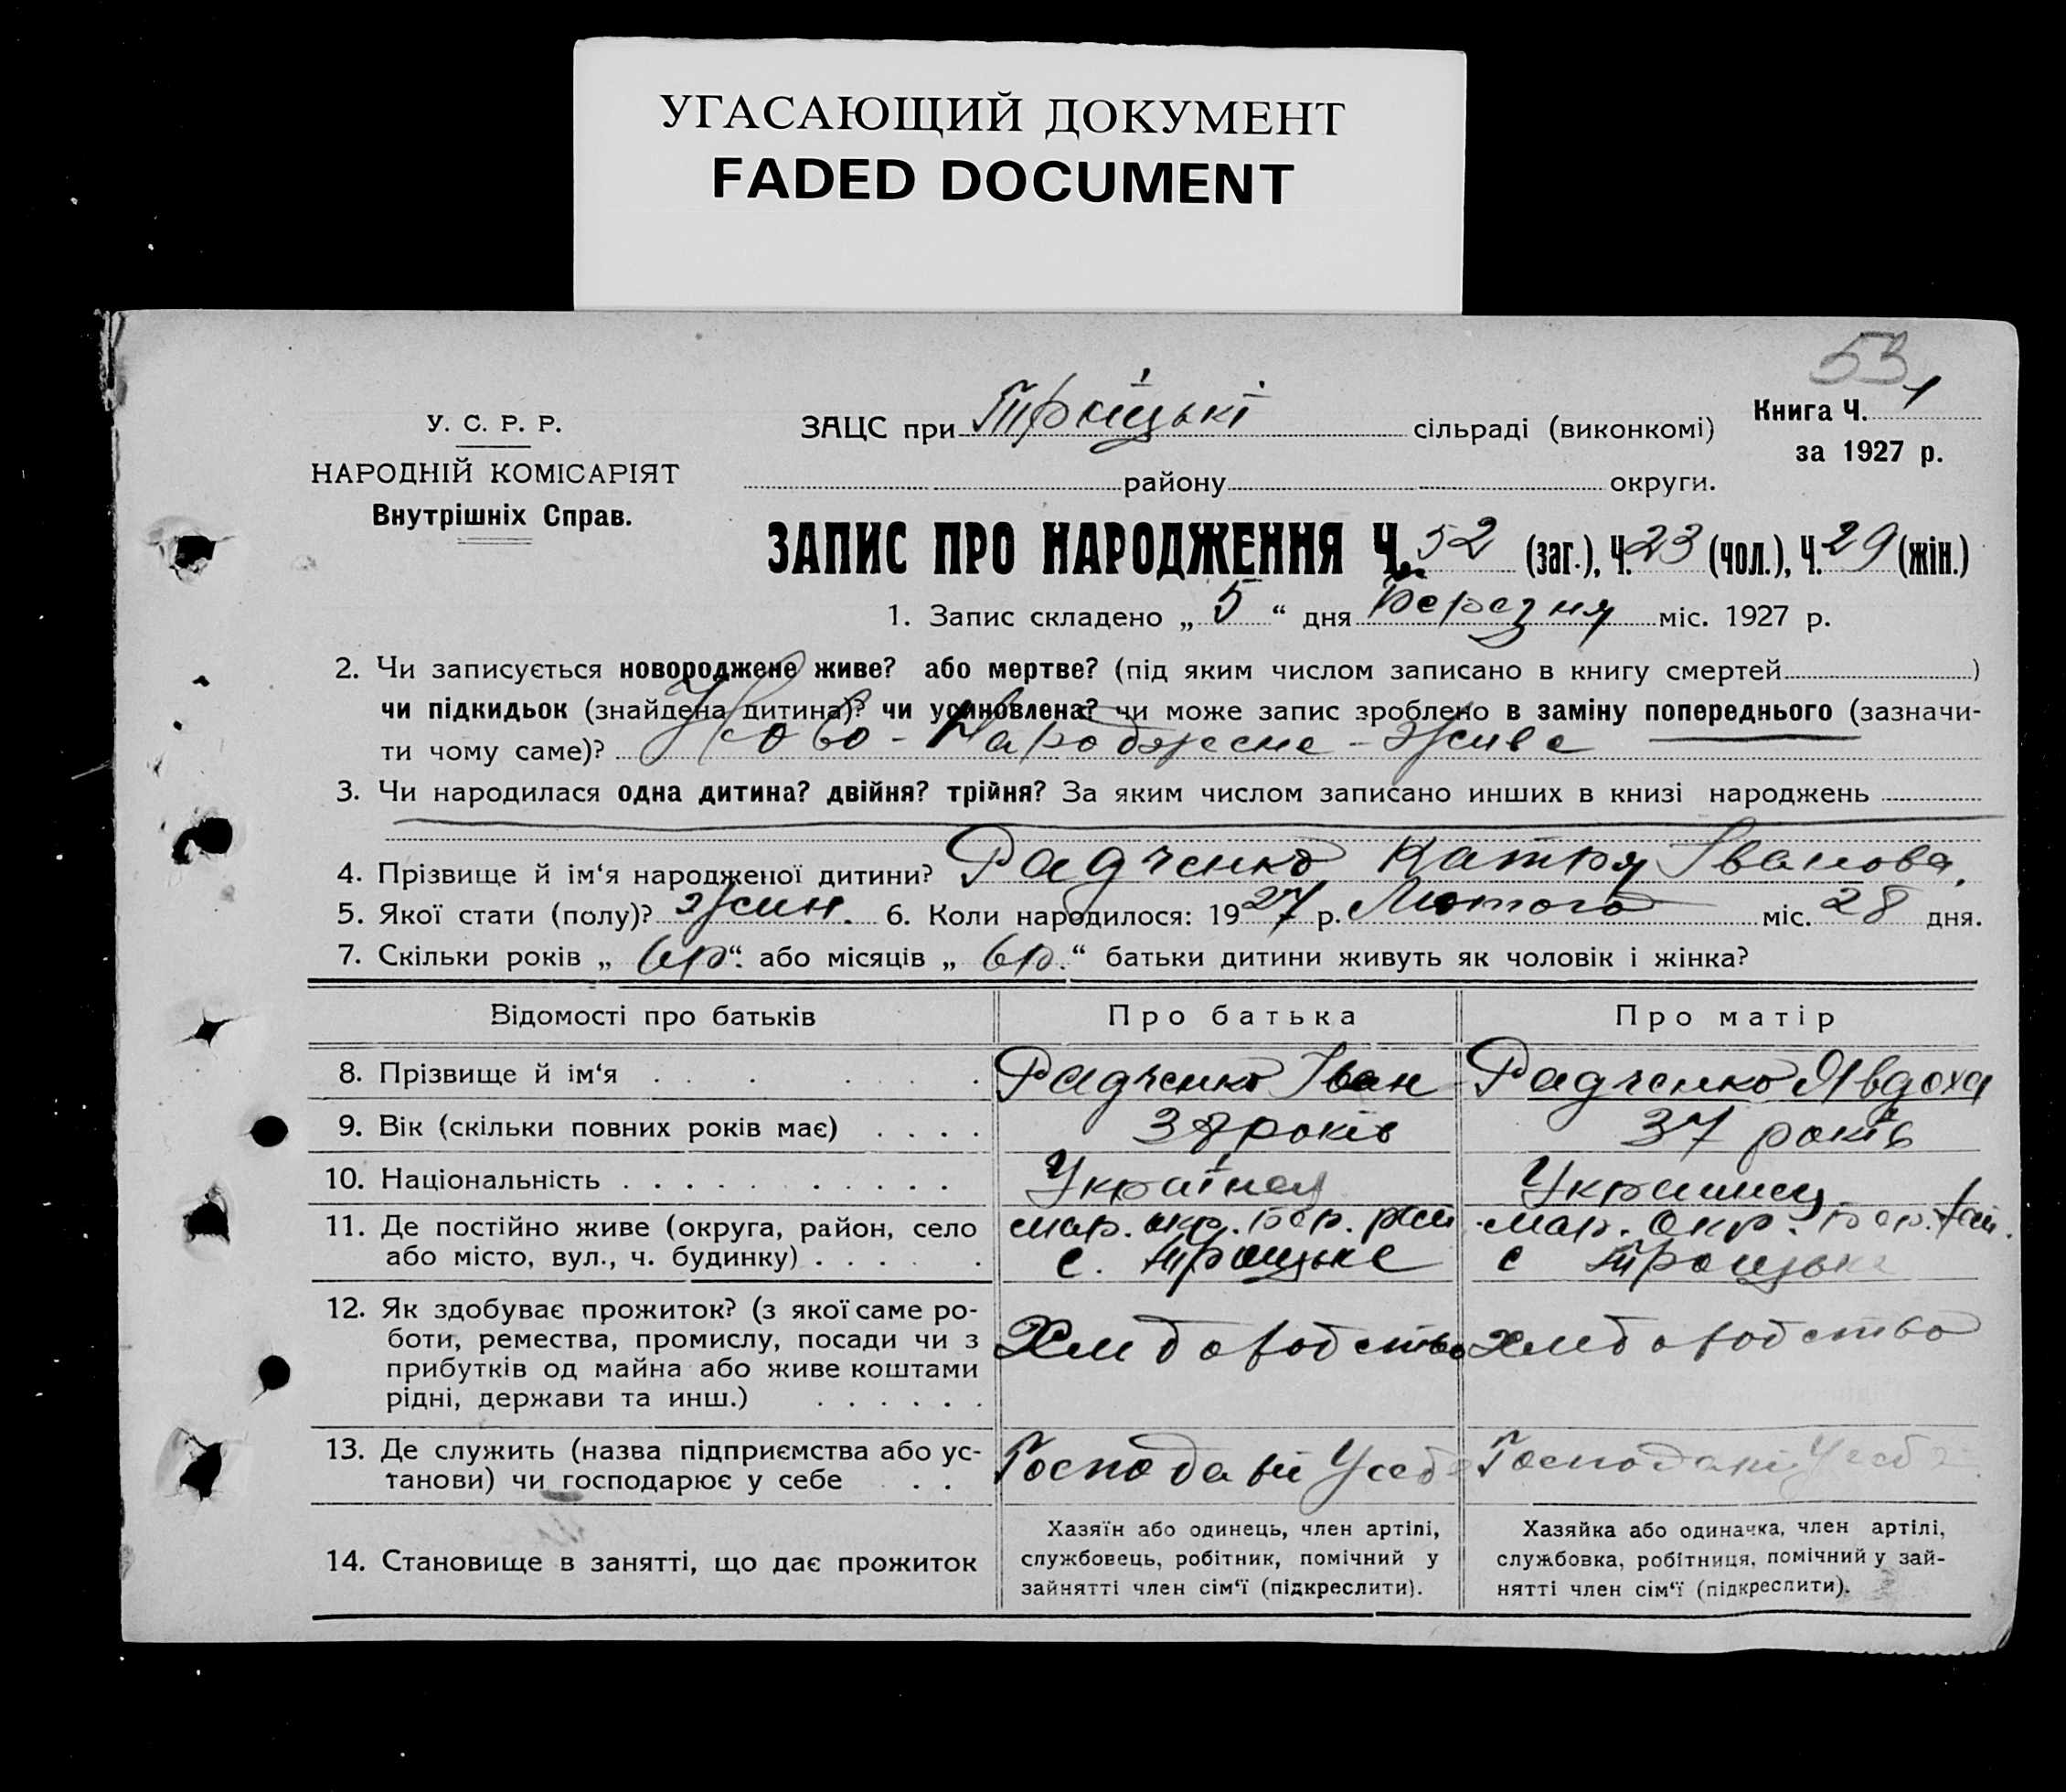 УГАСАЮЩИЙ ДОКУМЕНТ
FADED DOCUMENT
53
У. С. Р. Р.
НАРОДНІЙ КОМІСАРІЯТ
Внутрішніх Справ.
ЗАЦС при Троіцькі сільраді (виконкомі)
Книга Ч. 1
за 1927 р.
району округи.
ЗАПИС ПРО НАРОДЖЕННЯ Ч. 52 (заг.), Ч. 23 (чол.), Ч. 29 (жін.)
1. Запис складено „ 5 “ дня Березня міс. 1927 р.
2. Чи записується новороджене живе? або мертве? (під яким числом записано в книгу смертей )
чи підкидьок (знайдена дитина)? чи усиновлена? чи може запис зроблено в заміну попереднього (зазначи-
ти чому саме)? Ново-Народжене-Живе
3. Чи народилася одна дитина? двійня? трійня? За яким числом записано инших в книзі народжень
4. Прізвище й ім‘я народженої дитини? Радченко Катря Іванова.
5. Якої стати (полу)? жин. 6. Коли народилося: 1927 р. Лютого міс. 28 дня.
7. Скільки років „ 6р “ або місяців „ 6р. “ батьки дитини живуть як чоловік і жінка?
Відомості про батьків Про батька Про матір
8. Прізвище й ім‘я Радченко Іван Радченко Явдоха
9. Вік (скільки повних років має) 38 років 37 років
10. Національність Українец Украинец
11. Де постійно живе (округа, район, село
або місто, вул., ч. будинку)
мар. окр. Бер. рай
с. Троицьке
мар. окр. Бер. рай.
с Троицьке
12. Як здобуває прожиток? (з якої саме ро-
боти, ремества, промислу, посади чи з
прибутків од майна або живе коштами
рідні, держави та инш.)
Хлибоводство
хлибоводство
13. Де служить (назва підприємства або ус-
танови) чи господарює у себе
Усебе
14. Становище в занятті, що дає прожиток
Хазяїн або одинець, член артілі,
службовець, робітник, помічний у
зайнятті член сім‘ї (підкреслити).
Хазяйка або одиначка, член артілі,
службовка, робітниця, помічний у зай-
нятті член сім‘ї (підкреслити).